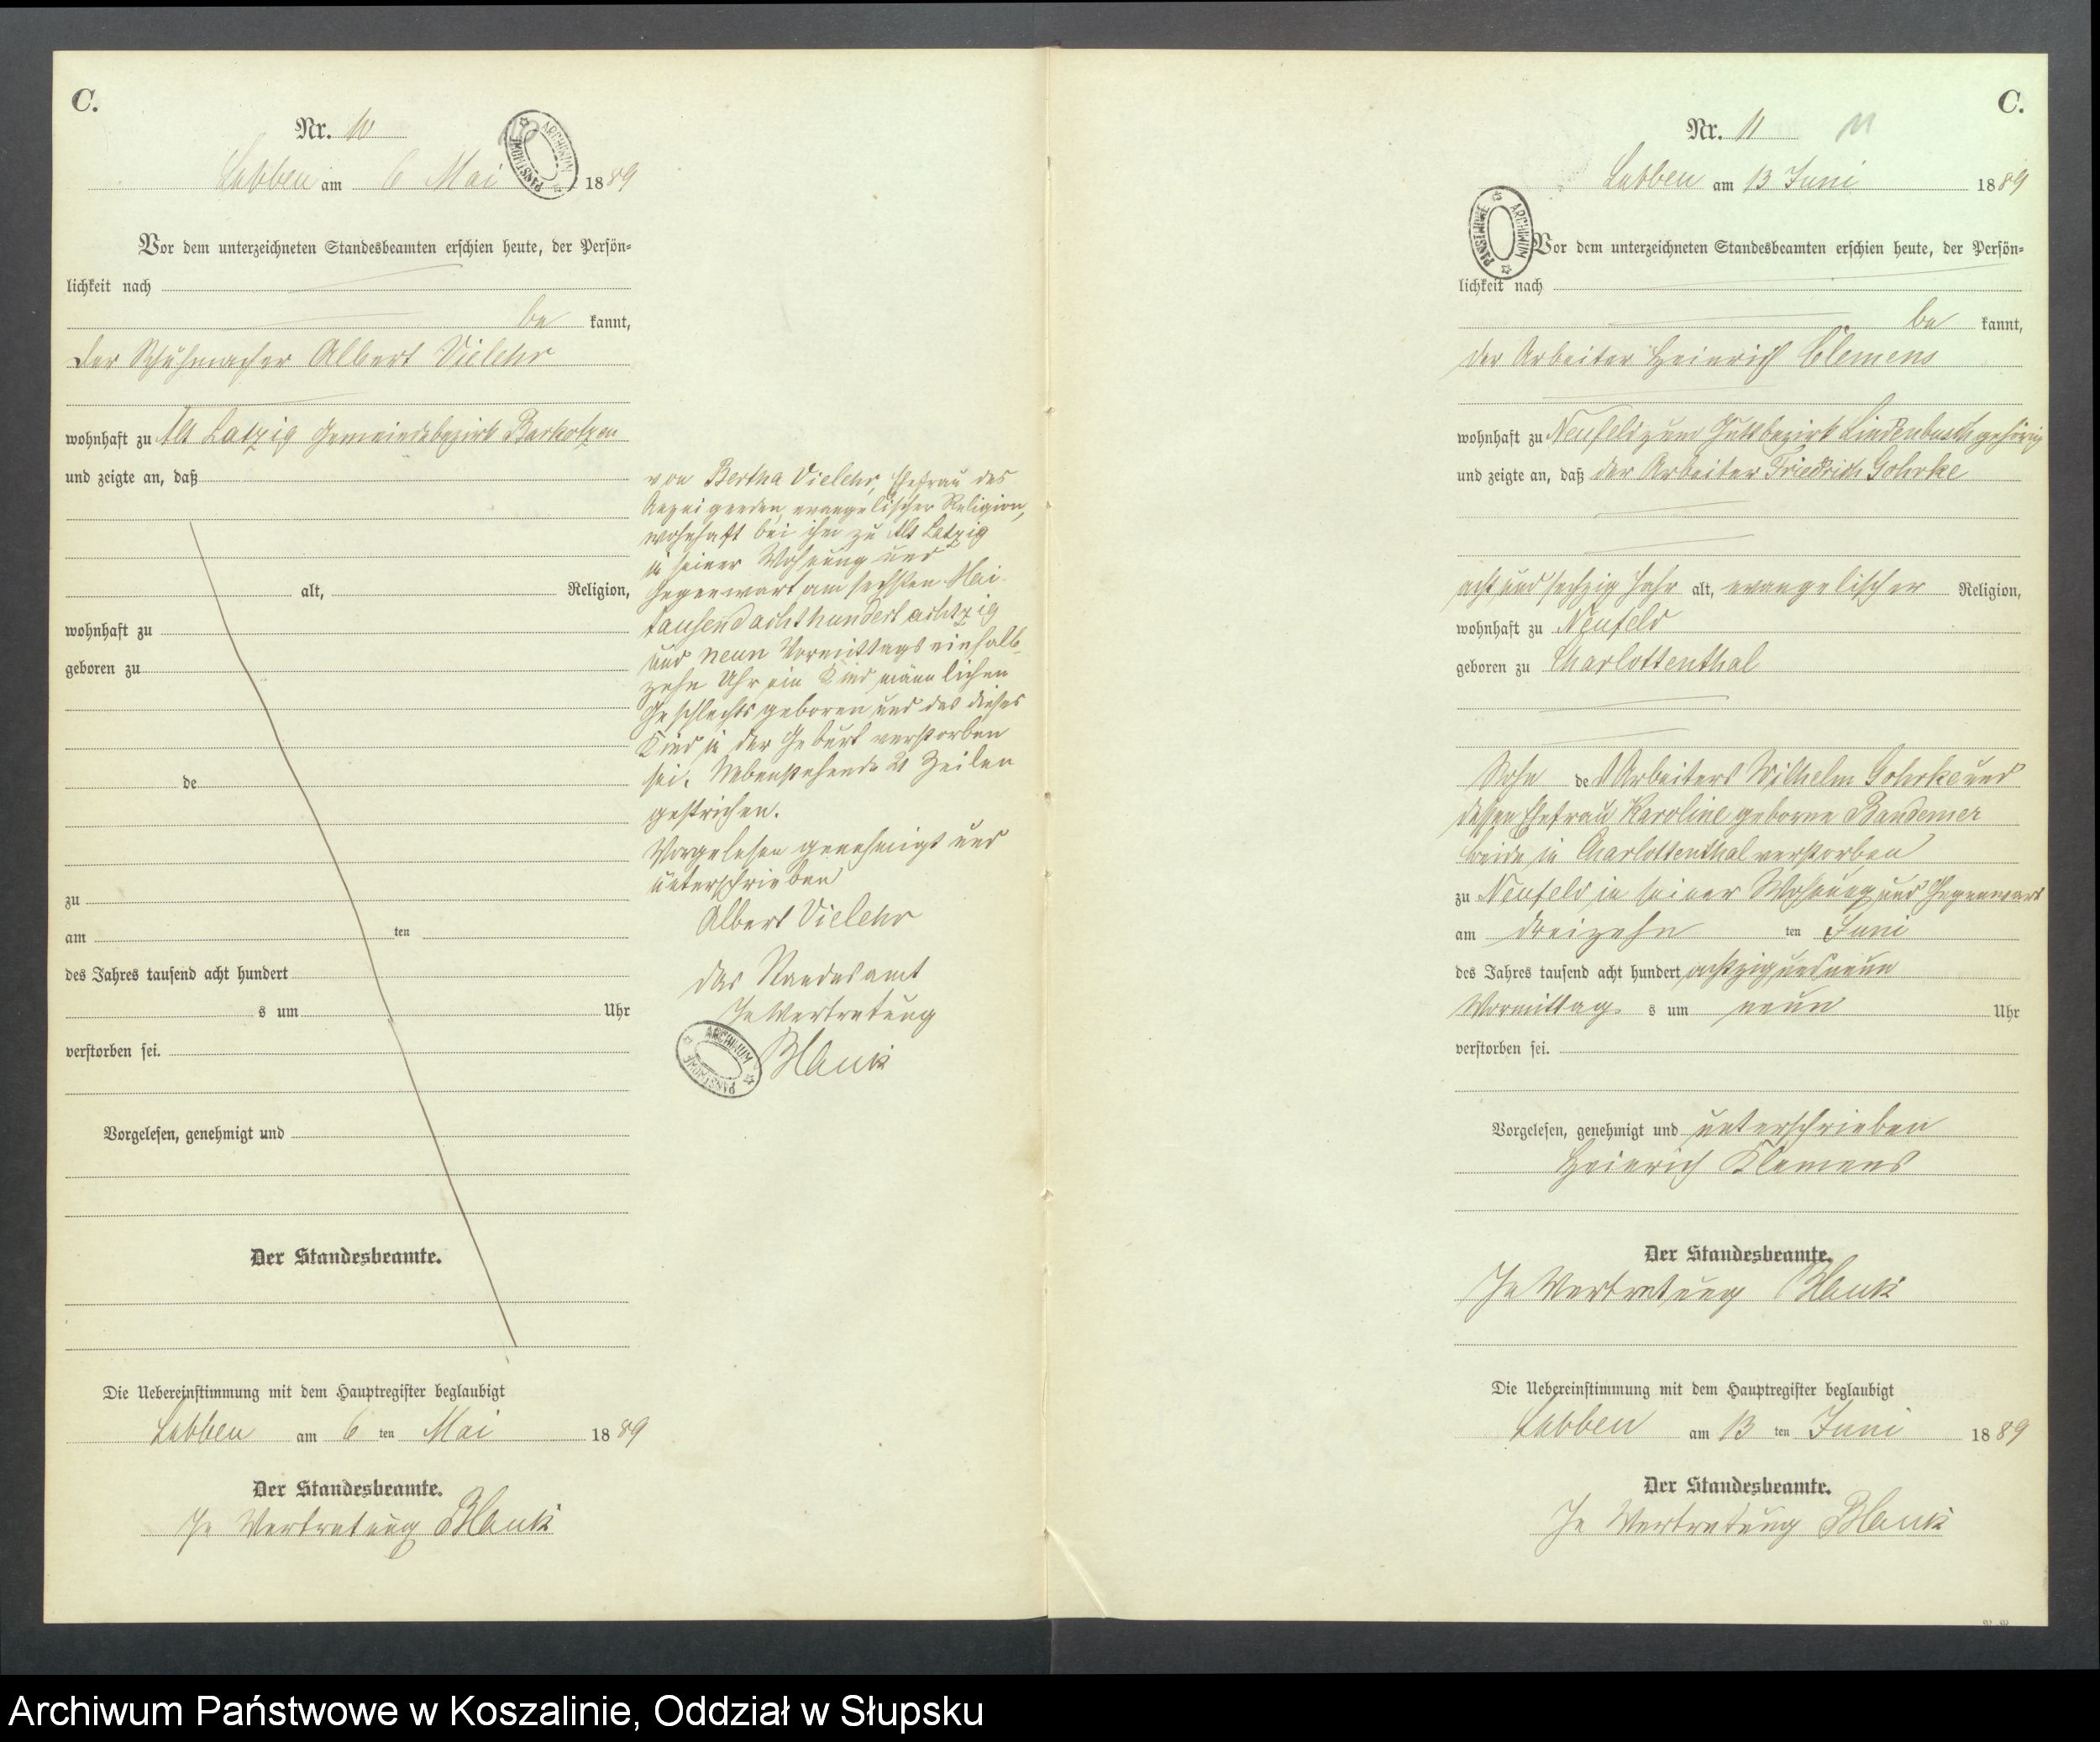 C.
Nr. 10
ARCHIWUM PAŃSTWOWE
Labben am 6 Mai 1889
Vor dem unterzeichneten Standesbeamten erschien heute, der Persön=
lichkeit nach
be kannt,
der Schuhmacher Albert Vielehr
wohnhaft zu Alt Latzig Gemeindebezirk Barkotzen
und zeigte an, daß
alt, Religion,
wohnhaft zu
geboren zu
de
zu
am ten
des Jahres tausend acht hundert
s um Uhr
verstorben sei.
Vorgelesen, genehmigt und
Der Standesbeamte.
Die Uebereinstimmung mit dem Hauptregister beglaubigt
Labben am 6 ten Mai 1889
Der Standesbeamte.
In Vertretung Blank
von Bertha Vielehr, Ehefrau des
Anzeigenden, evangelischer Religion,
wohnhaft bei ihm zu Alt Latzig
in seiner Wohnung und
Gegenwart am sechsten Mai
tausend achthundert achtzig
und neun Vormittags einhalb
zehn Uhr ein Kind männlichen
Geschlechts geboren und das dieses
Kind in der Geburt verstorben
sei. Nebenstehende 21 Zeilen
gestrichen.
Vorgelesen genehmigt und
unterschrieben
Albert Vielehr
Das Standesamt
In Vertretung
Blank
ARCHIWUM PAŃSTWOWE
C.
Nr. 11 11
Labben am 13 Juni 1889
ARCHIWUM PAŃSTWOWE
Vor dem unterzeichneten Standesbeamten erschien heute, der Persön=
lichkeit nach
be kannt,
der Arbeiter Heinrich Clemens
wohnhaft zu Neufeld zum Gutsbezirk Lindenbusch gehörig
und zeigte an, daß der Arbeiter Friedrich Gohrke
acht und sechzig Jahr alt, evangelischer Religion,
wohnhaft zu Neufeld
geboren zu Charlottenthal
Sohn des Arbeiters Wilhelm Gohrke und
dessen Ehefrau Karoline geborne Bandemer
beide in Charlottenthal verstorben
zu Neufeld in seiner Wohnung und Gegenwart
am dreizehn ten Juni
des Jahres tausend acht hundert achtzig und neun
Vormittag s um neun Uhr
verstorben sei.
Vorgelesen, genehmigt und unterschrieben
Heinrich Klemens
Der Standesbeamte.
In Vertretung Blank
Die Uebereinstimmung mit dem Hauptregister beglaubigt
Labben am 13 ten Juni 1889
Der Standesbeamte.
In Vertretung Blank
Archiwum Państwowe w Koszalinie, Oddział w Słupsku